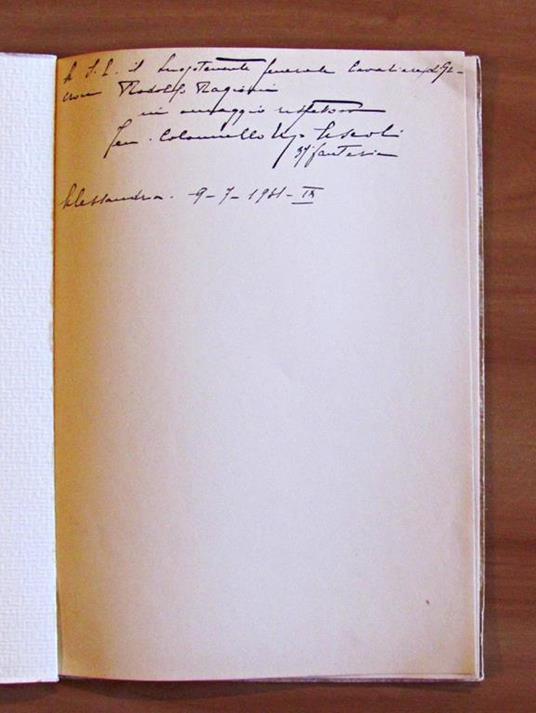 A S. E. il Luogotenente Generale Cavaliere
Rodolfo Ragioni
in omaggio rispettoso
Ten. Colonnello Ugo
37° fanteria
Alessandria - 9-7-1931-IX